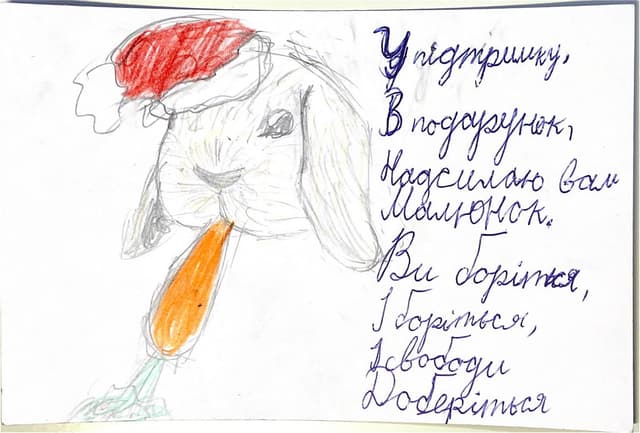 У підтримку,
В подарунок,
Надсилаю вам
Малюнок.
Ви боріться,
І боріться,
І свободи
Доберіться